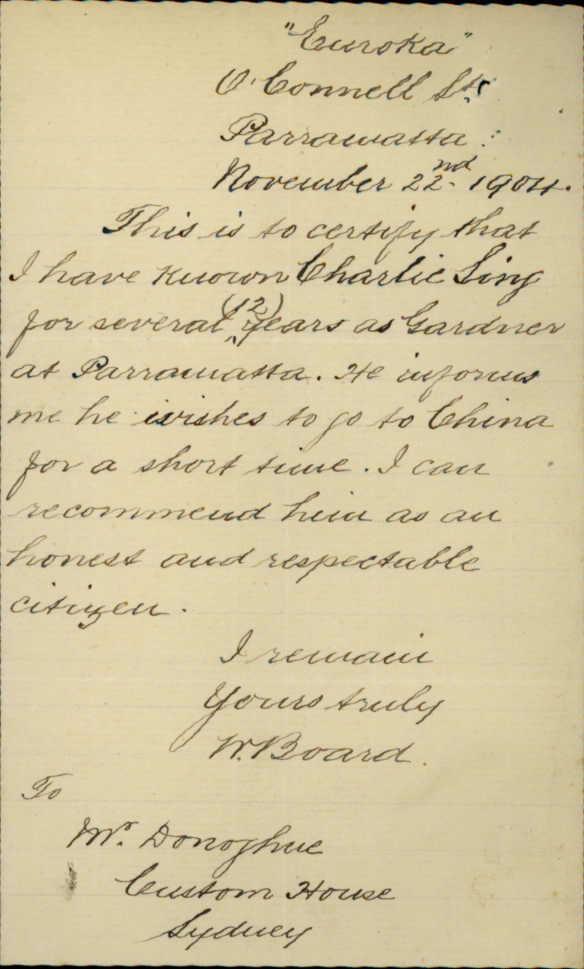 "Euroka"
O'Connell St.
Parramatta :
November 22nd. 1904.
This is to certify that
I have known Charlie Sing
for several (12) years as Gardner
at Parramatta. He informs
me he wishes to go to China
for a short time. I can
recommend him as an
honest and respectable
citizen.
I remain
Yours truly
W. Board.
To
Mr. Donoghue
Custom House
Sydney